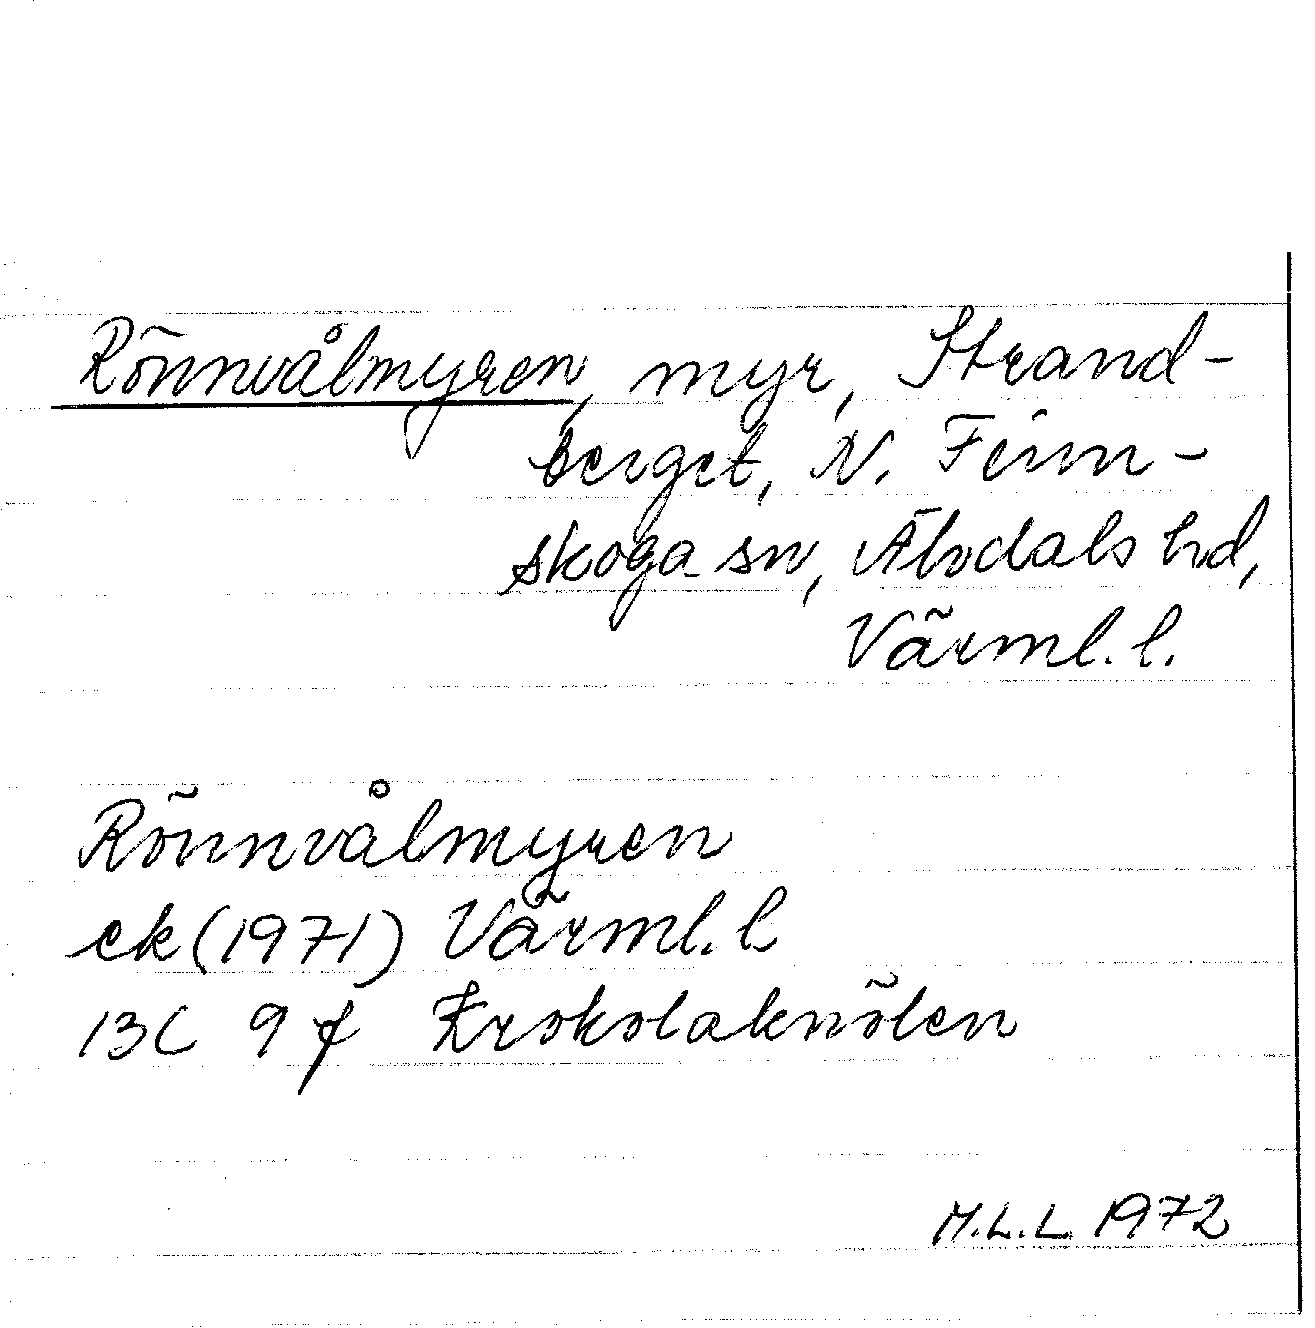 Rönnvålmyren, myr, Strand-
berget, N. Finn-
skoga sn, Älvdals hd,
Värml. l.
Rönnvålmyren
ek (1971) Värml. l
13C 9f Krokolaknölen
M.L.L. 1972